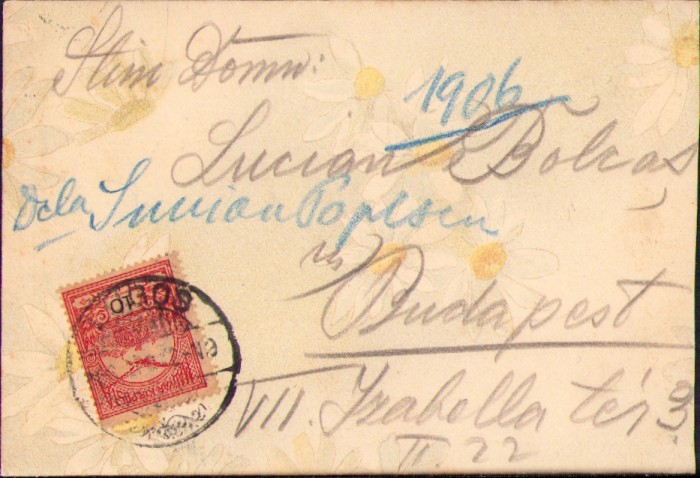 Stim Domn:
1906
Lucian Bolcaș
dela Lucian Popescu
Budapest
VII. Izabella tér 3
II. 22
10